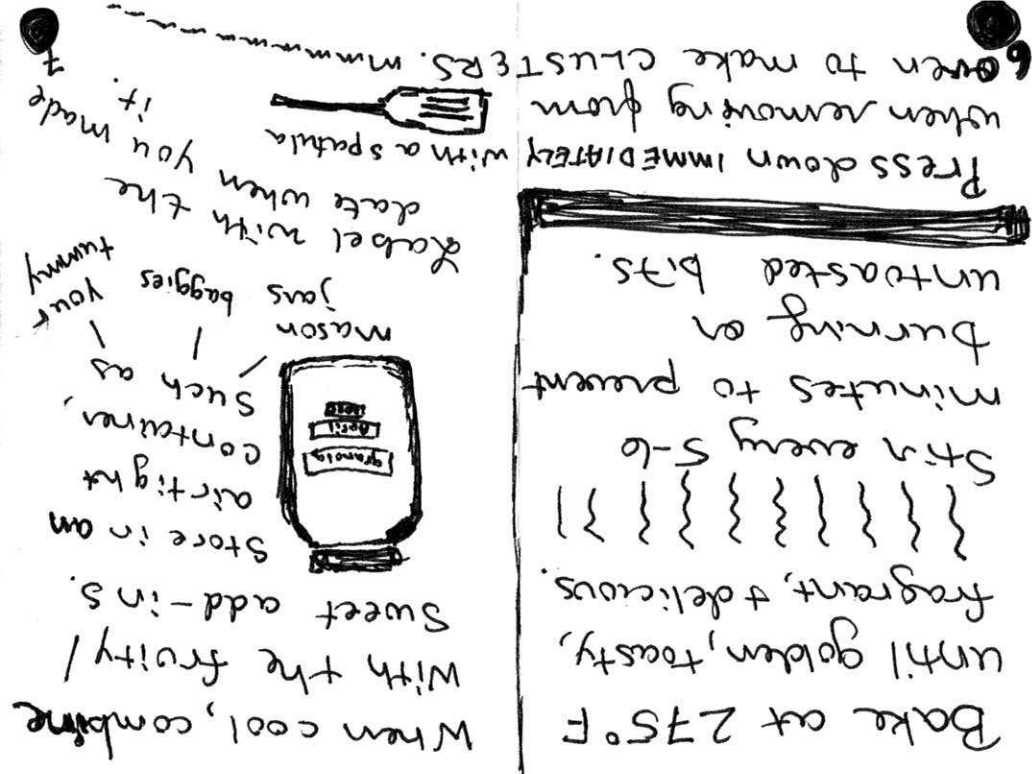 Bake at 275°F
until golden, toasty,
fragrant, & delicious.
Stir every 5-6
minutes to prevent
burning or
untoasted bits.
Press down IMMEDIATELY with a spatula
when removing from
oven to make CLUSTERS. mmmmmmm
6
When cool, combine
with the fruity/
sweet add-ins.
Store in an
airtight
container,
such as
granola
April
mason
jars
baggies
your
tummy
Label with the
date when you made
it.
7